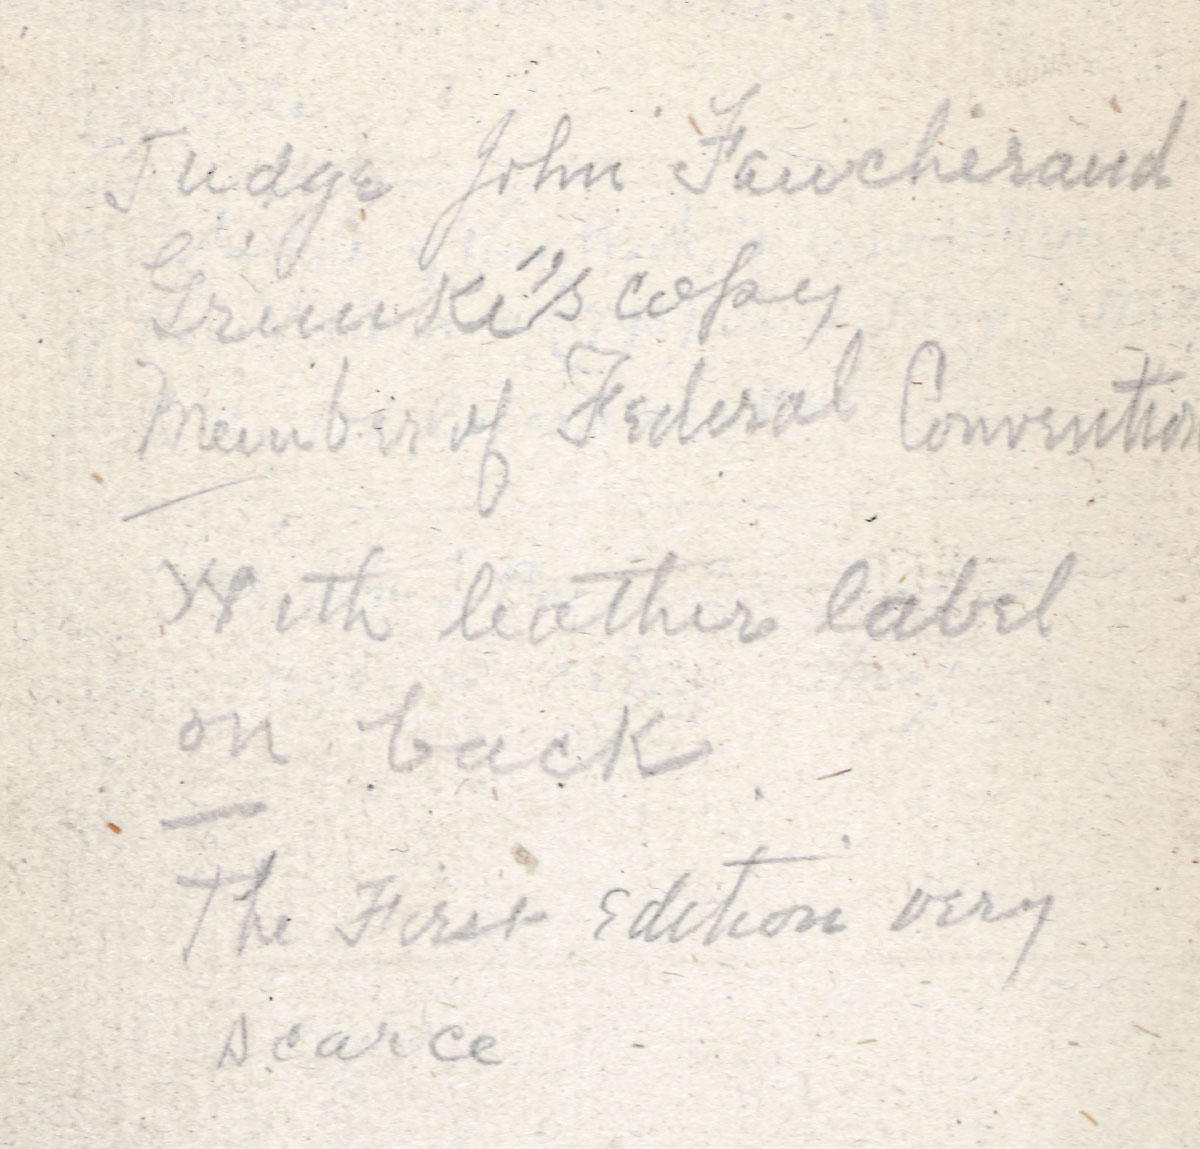 Judge John Faucherand
Grimké's copy
Member of Federal Convention
With leather label
on back
The First Edition very
scarce